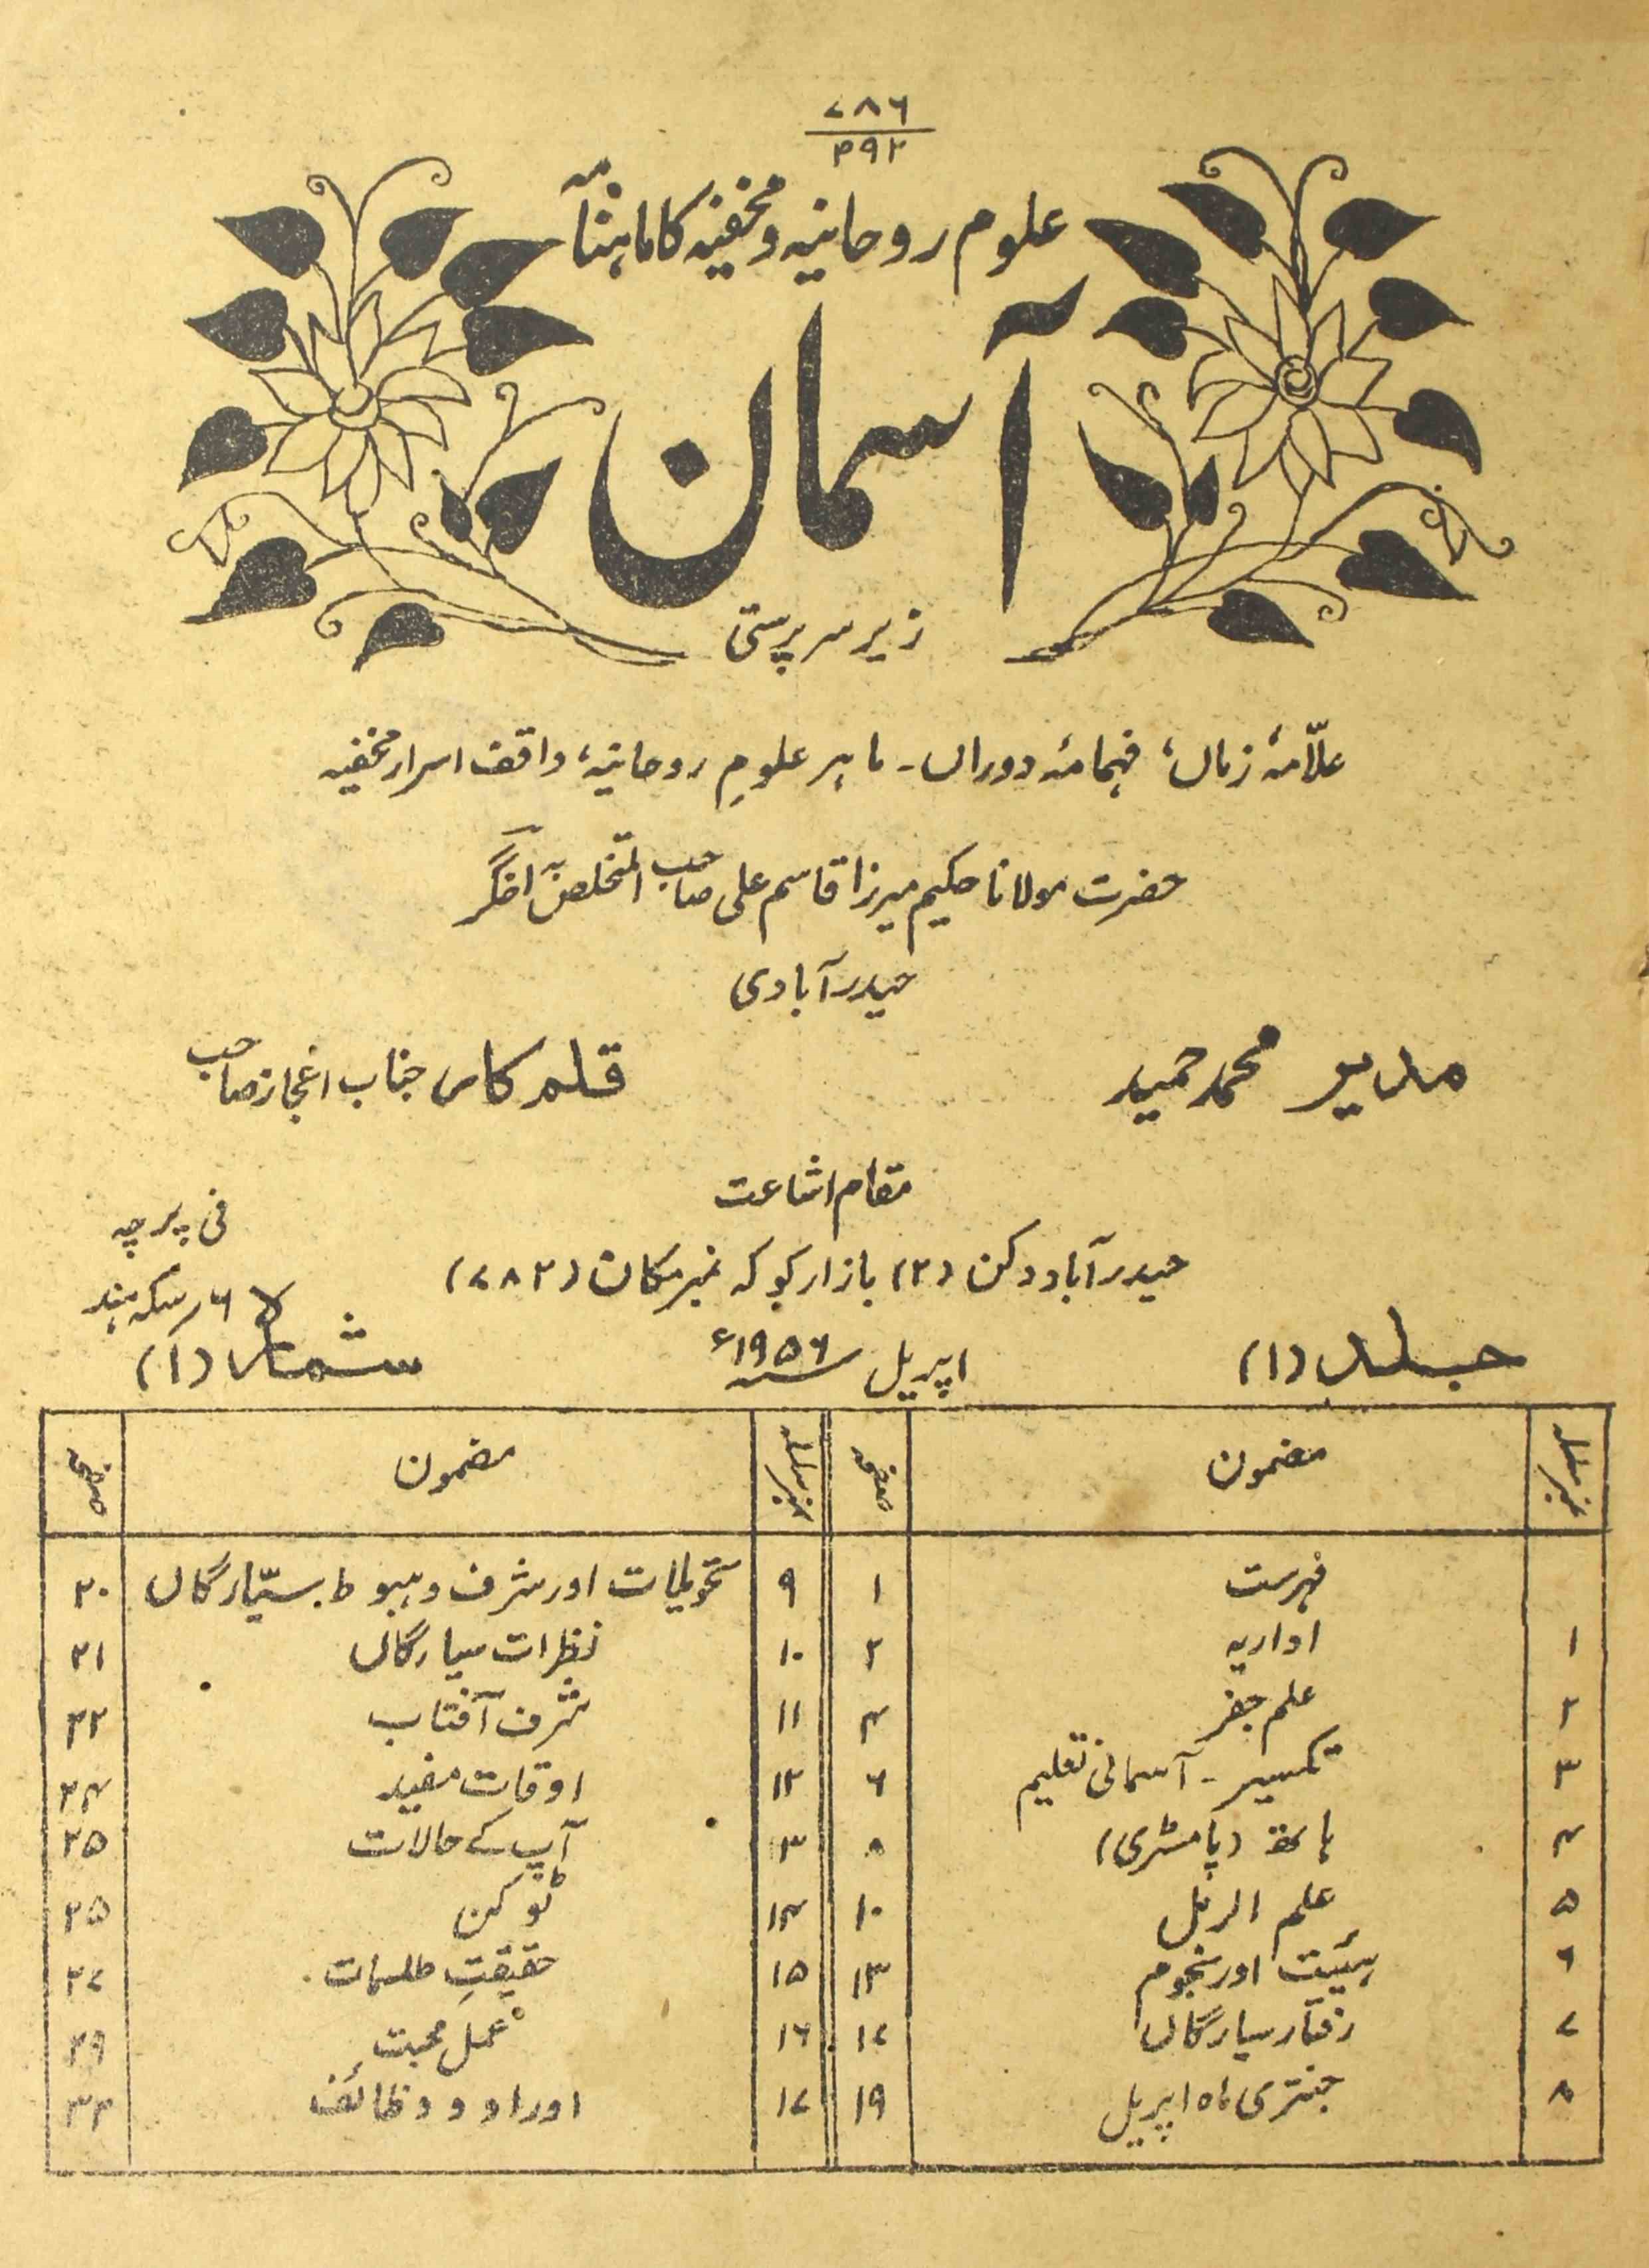 ۷۸۶
۳۹۲
علوم روحانیہ و مخفیہ کا ماہنامہ
آسمان
زیر سرپرستی
علّامۂ زماں، فہامۂ دوراں۔ ماہر علومِ روحانیہ، واقف اسرار مخفیہ
حضرت مولانا حکیم میرزا قاسم علی صاحب المتخلص بہ اخگر
حیدرآبادی
مدیر محمد حمید
قلمکار جناب اعجاز صاحب
مقام اشاعت
فی پرچہ
حیدرآباد دکن (۲) بازار کوکہ نمبر مکان (۷۸۲)
۶؍ سکہ ہند
جلد (۱)
اپریل ۱۹۵۶ء
شمارہ (۱)
نمبر سلسلہ مضمون صفحہ نمبر سلسلہ مضمون صفحہ
فہرست ۱ ۹ تحویلات اور شرف و ہبوط سیّارگاں ۲۰
۱ اداریہ ۲ ۱۰ نظرات سیارگاں ۲۱
۲ علم جفر ۴ ۱۱ شرف آفتاب ۲۲
۳ تکسیر۔ آسمانی تعلیم ۶ ۱۲ اوقات مفید ۲۴
۴ ہاتھ (پامسٹری) ۸ ۱۳ آپ کے حالات ۲۵
۵ علم الرمل ۱۰ ۱۴ ٹوکن ۲۵
۶ ہیئیت اور نجوم ۱۳ ۱۵ حقیقتِ طلسمات ۲۷
۷ رفتار سیارگاں ۱۷ ۱۶ عمل محبت ۲۹
۸ جنتری ماہ اپریل ۱۹ ۱۷ اوراد و وظائف ۳۲